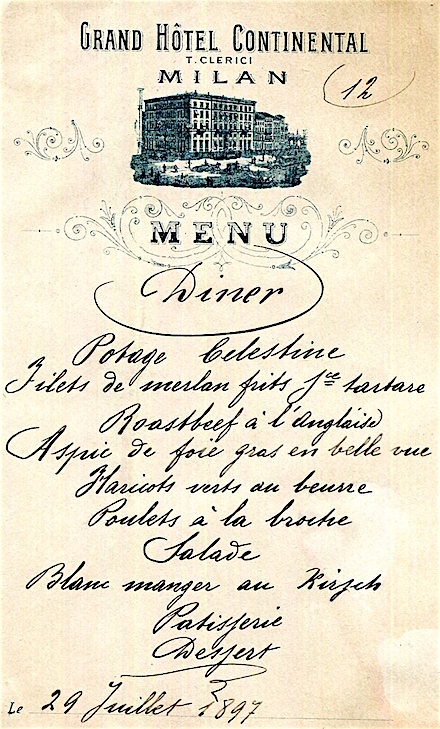 GRAND HÔTEL CONTINENTAL
T. CLERICI
MILAN
12
MENU
Diner
Potage Celestine
Filets de merlan frits Sce tartare
Roastbeef à l'Anglaise
Aspic de foie gras en belle vue
Haricots verts au beurre
Poulets à la broche
Salade
Blanc manger au Kirsch
Patisserie
Dessert
Le 29 Juillet 1897